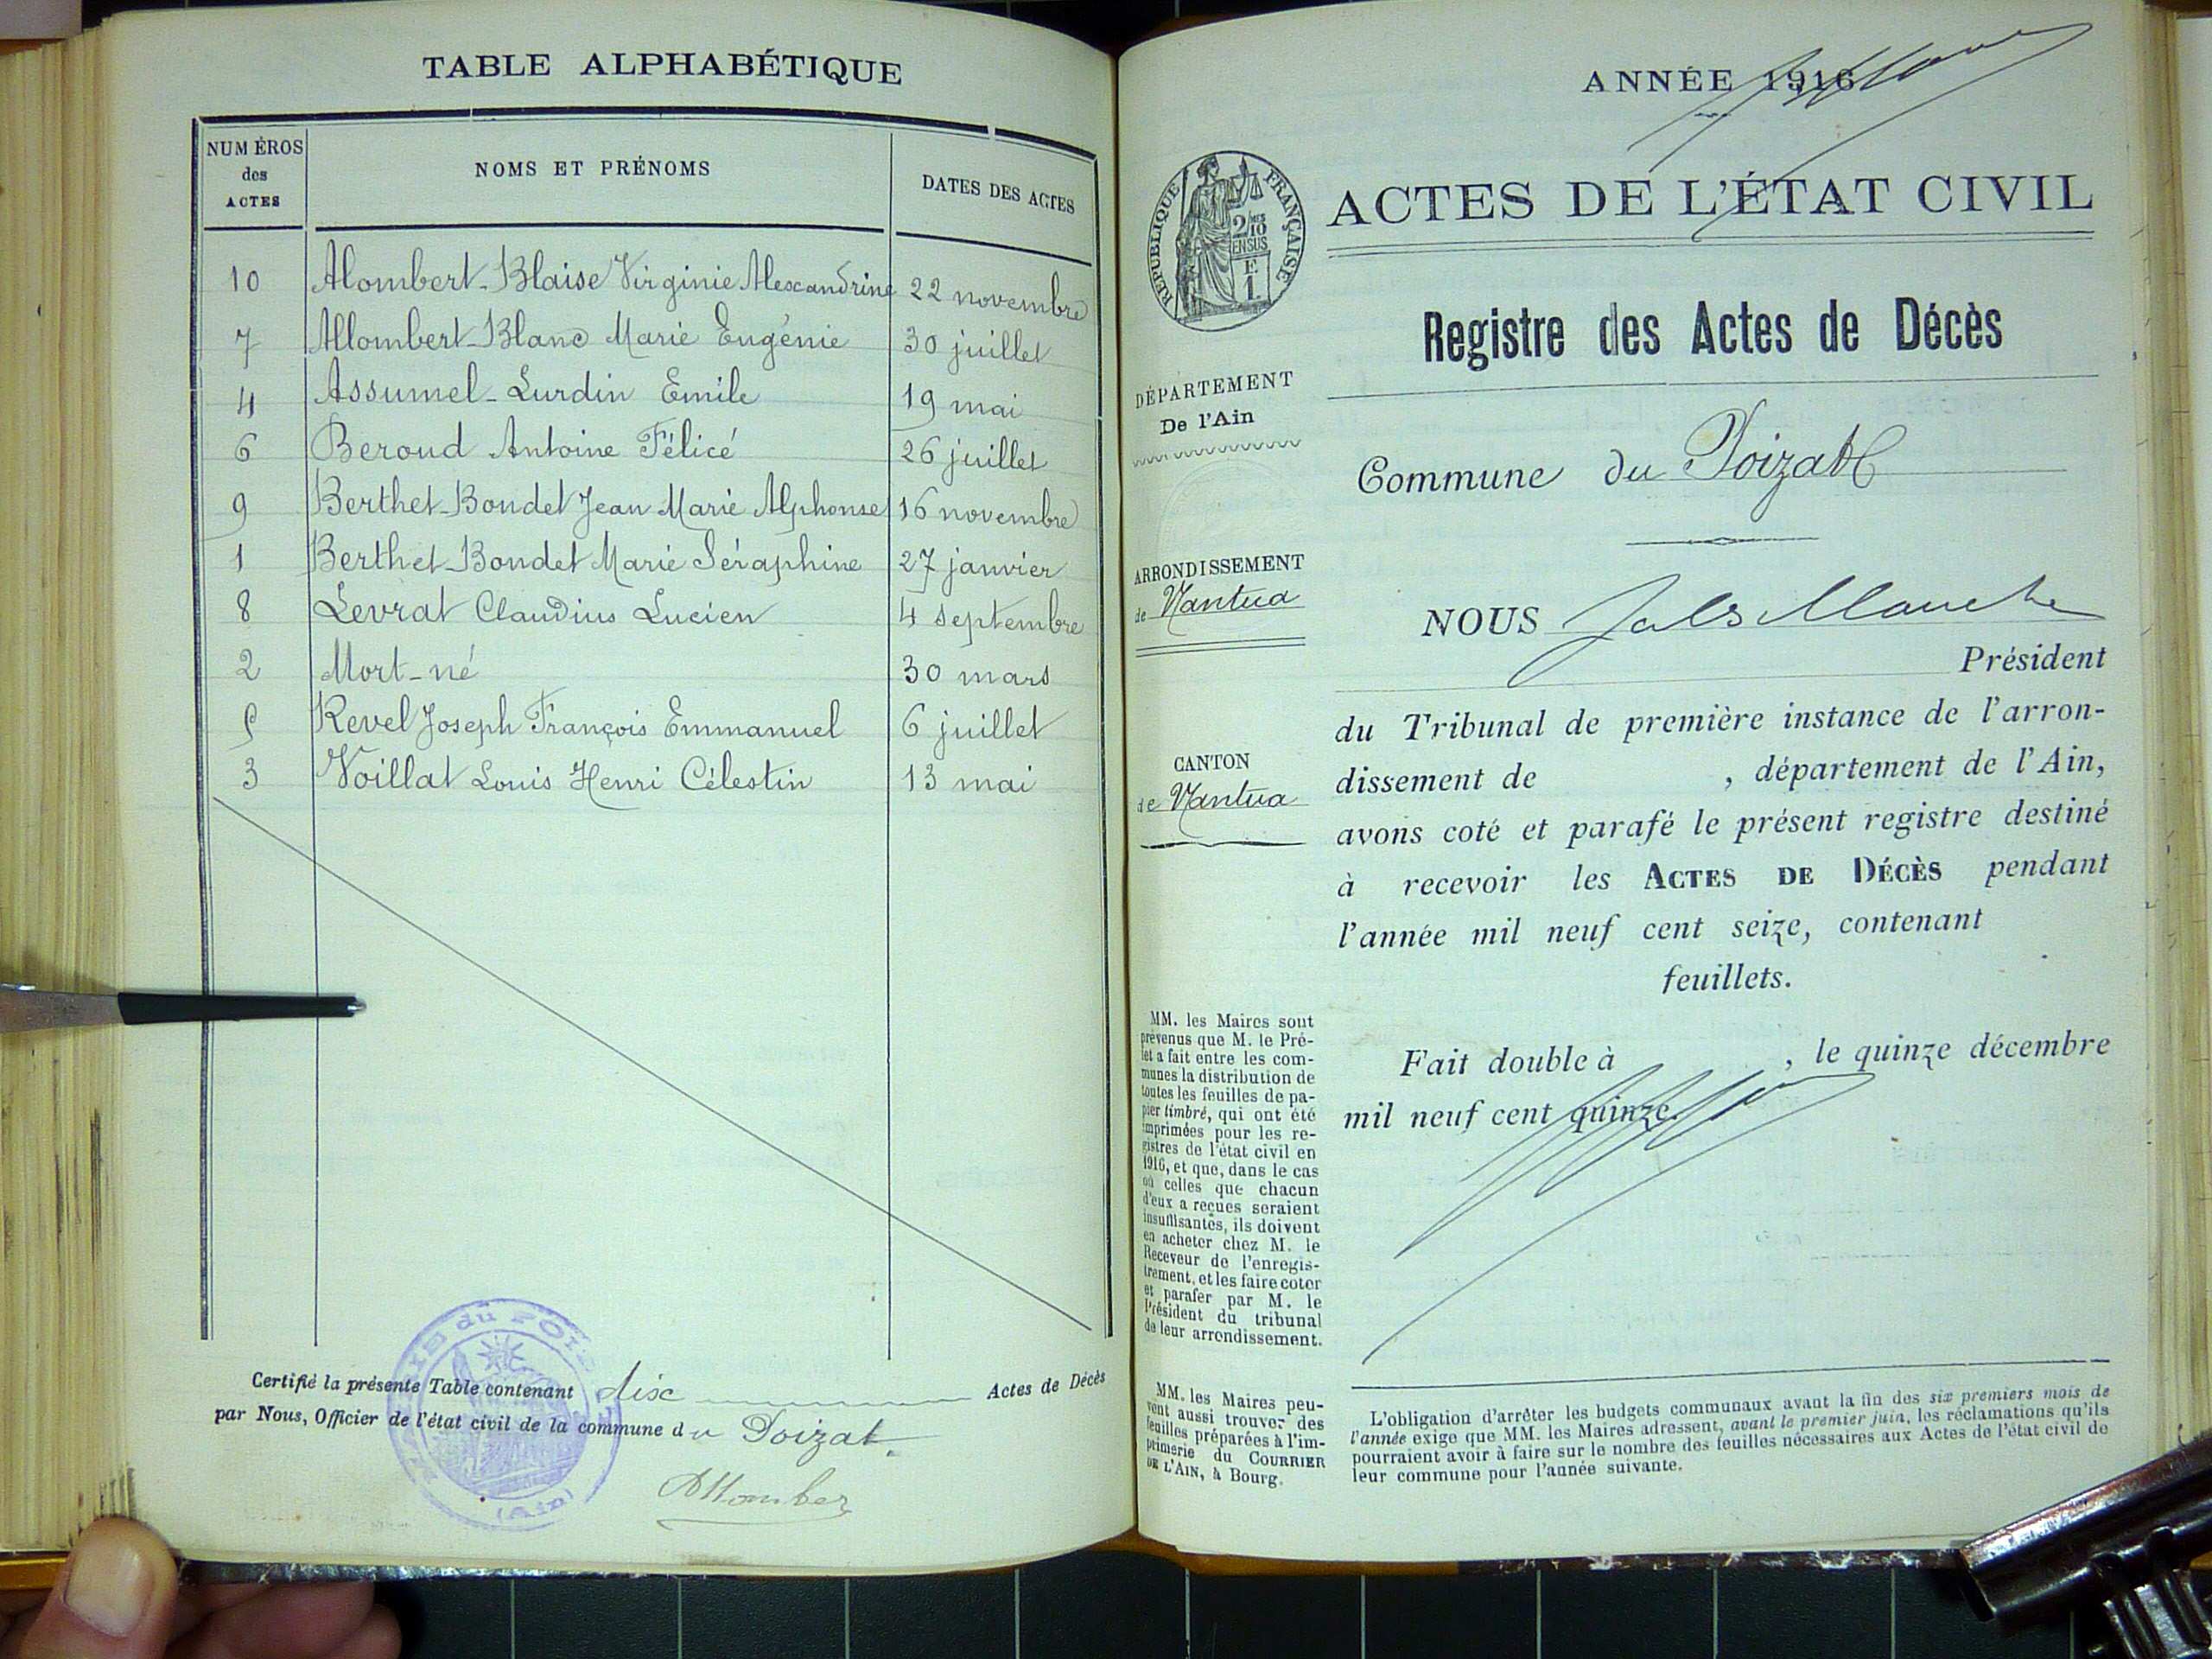 TABLE ALPHABÉTIQUE
NUMÉROS
des
ACTES
NOMS ET PRÉNOMS
DATES DES ACTES
10 Alombert-Blaise Virginie Alexandrine 22 novembre
7 Allombert-Blanc Marie Eugénie 30 juillet
4 Assumel-Lurdin Emile 19 mai
6 Beroud Antoine Félicé 26 juillet
9 Berthet-Bondet Jean Marie Alphonse 16 novembre
1 Berthet-Bondet Marie Séraphine 27 janvier
8 Levrat Claudius Lucien 4 septembre
2 Mort-né 30 mars
5 Revel Joseph François Emmanuel 6 juillet
3 Voillat Louis Henri Célestin 13 mai
Certifié la présente Table contenant dix Actes de Décès
par Nous, Officier de l'état civil de la commune du Poizat.
(Ain)
Allomber
ANNÉE 1916
RÉPUBLIQUE FRANÇAISE
2/10
EN SUS
E
1.
ACTES DE L'ÉTAT CIVIL
Registre des Actes de Décès
DÉPARTEMENT
De l'Ain
Commune du Poizat
ARRONDISSEMENT
de Nantua
NOUS
Président
du Tribunal de première instance de l'arron-
dissement de , département de l'Ain,
CANTON
de Nantua
avons coté et parafé le présent registre destiné
à recevoir les ACTES DE DÉCÈS pendant
l'année mil neuf cent seize, contenant
feuillets.
Fait double à , le quinze décembre
mil neuf cent quinze.
MM. les Maires sont
prévenus que M. le Pré-
fet a fait entre les com-
munes la distribution de
toutes les feuilles de pa-
pier timbré, qui ont été
imprimées pour les re-
gistres de l'état civil en
1916, et que, dans le cas
où celles que chacun
d'eux a reçues seraient
insuffisantes, ils doivent
en acheter chez M. le
Receveur de l'enregis-
trement, et les faire coter
et parafer par M. le
Président du tribunal
de leur arrondissement.
MM. les Maires peu-
vent aussi trouver des
feuilles préparées à l'im-
primerie du COURRIER
DE L'AIN, à Bourg.
L'obligation d'arrêter les budgets communaux avant la fin des six premiers mois de
l'année exige que MM. les Maires adressent, avant le premier juin, les réclamations qu'ils
pourraient avoir à faire sur le nombre des feuilles nécessaires aux Actes de l'état civil de
leur commune pour l'année suivante.